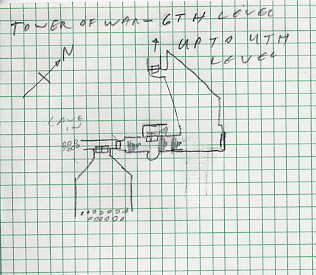 TOWER OF WAR - 6TH LEVEL
N
UP TO 4TH
LEVEL
CAVE
IN